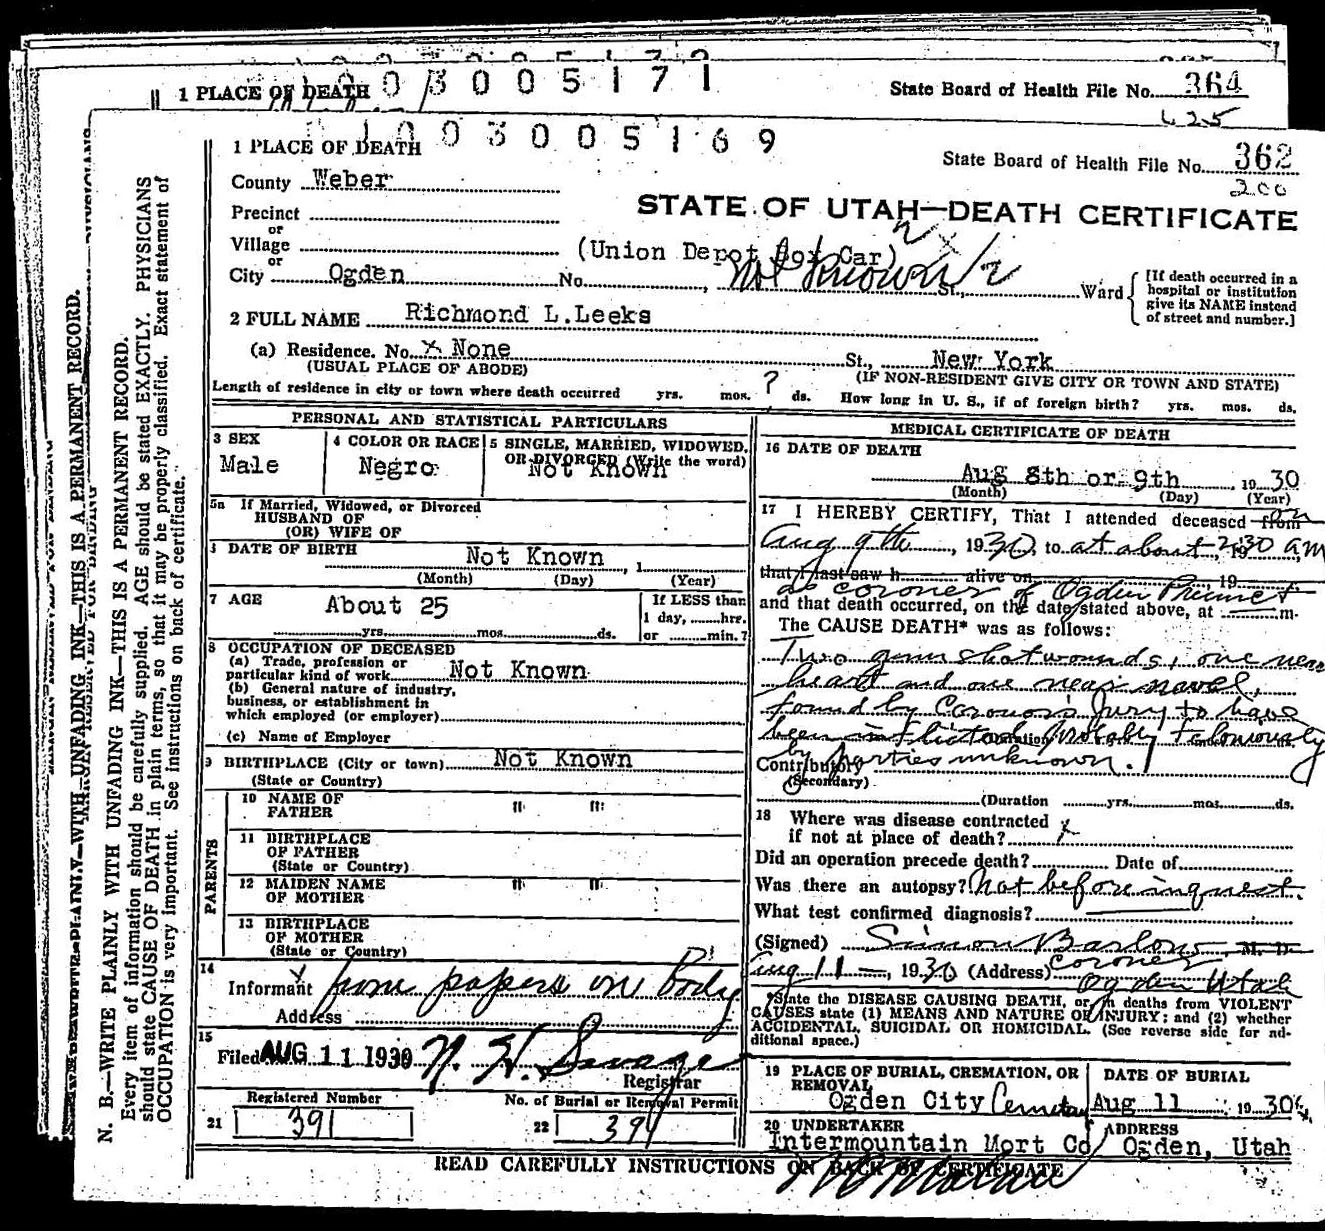 1 PLACE OF DEATH 003005171
State Board of Health File No. 364
625
1 PLACE OF DEATH 003005169
State Board of Health File No. 362
200
County Weber
STATE OF UTAH—DEATH CERTIFICATE
Precinct
or
Village (Union Depot Box Car)
or
City Ogden No. Not Known St., Ward
[If death occurred in a hospital or institution give its NAME instead of street and number.]
2 FULL NAME Richmond L.Leeks
(a) Residence. No. x None St., New York
(USUAL PLACE OF ABODE) (IF NON-RESIDENT GIVE CITY OR TOWN AND STATE)
Length of residence in city or town where death occurred yrs. mos. ? ds. How long in U. S., if of foreign birth? yrs. mos. ds.
PERSONAL AND STATISTICAL PARTICULARS
3 SEX
Male
4 COLOR OR RACE
Negro
5 SINGLE, MARRIED, WIDOWED, OR DIVORCED (Write the word)
Not Known
5a If Married, Widowed, or Divorced
HUSBAND OF
(OR) WIFE OF
DATE OF BIRTH Not Known , 1
(Month) (Day) (Year)
7 AGE About 25
yrs. mos. ds.
If LESS than
1 day, hrs.
or min.?
8 OCCUPATION OF DECEASED
(a) Trade, profession or
particular kind of work Not Known
(b) General nature of industry,
business, or establishment in
which employed (or employer)
(c) Name of Employer
9 BIRTHPLACE (City or town) Not Known
(State or Country)
PARENTS
10 NAME OF FATHER " "
11 BIRTHPLACE
OF FATHER
(State or Country)
12 MAIDEN NAME
OF MOTHER " "
13 BIRTHPLACE
OF MOTHER
(State or Country)
14
Informant from papers on Body
Address
15
Filed AUG 11 1930 N. H. Savage
Registrar
Registered Number
21 391
No. of Burial or Removal Permit
22 394
MEDICAL CERTIFICATE OF DEATH
16 DATE OF DEATH
Aug 8th or 9th , 1930
(Month) (Day) (Year)
17 I HEREBY CERTIFY, That I attended deceased from on
Aug 9th, 1930, to at about 2:30 am
that I last saw h alive on , 19
as coroner of Ogden Precinct
and that death occurred, on the date stated above, at m.
The CAUSE DEATH* was as follows:
Two gunshot wounds, one near
heart and one near navel,
found by Coroner's Jury to have
been inflicted probably feloniously
by parties unknown.
Contributory
(Secondary)
(Duration yrs. mos. ds.
18 Where was disease contracted
if not at place of death? x
Did an operation precede death? Date of
Was there an autopsy? Not before inquest.
What test confirmed diagnosis?
(Signed) Simon Barlow, M. D.
Coroner
Aug 11, 1930 (Address) Ogden Utah
*State the DISEASE CAUSING DEATH, or in deaths from VIOLENT
CAUSES state (1) MEANS AND NATURE OF INJURY; and (2) whether
ACCIDENTAL, SUICIDAL OR HOMICIDAL. (See reverse side for ad-
ditional space.)
19 PLACE OF BURIAL, CREMATION, OR
REMOVAL
Ogden City Cemetery
DATE OF BURIAL
Aug 11 1930
20 UNDERTAKER
Intermountain Mort Co
ADDRESS
Ogden, Utah
READ CAREFULLY INSTRUCTIONS ON BACK OF CERTIFICATE
N. B.—WRITE PLAINLY WITH UNFADING INK—THIS IS A PERMANENT RECORD.
Every item of information should be carefully supplied. AGE should be stated EXACTLY. PHYSICIANS
should state CAUSE OF DEATH in plain terms, so that it may be properly classified. Exact statement of
OCCUPATION is very important. See instructions on back of certificate.